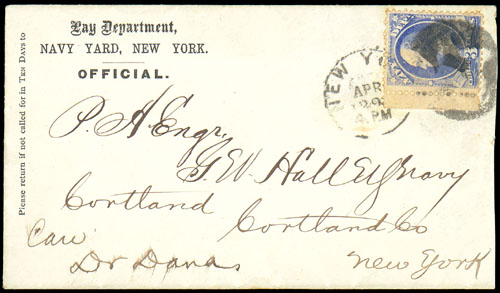 Pay Department,
NAVY YARD, NEW YORK.
OFFICIAL.
Please return if not called for in TEN DAYS to
NEW YO
APR
4 PM
P. A Engr.
G. W. Hall U S Navy
Cortland Cortland Co
Care
Dr Danas New York